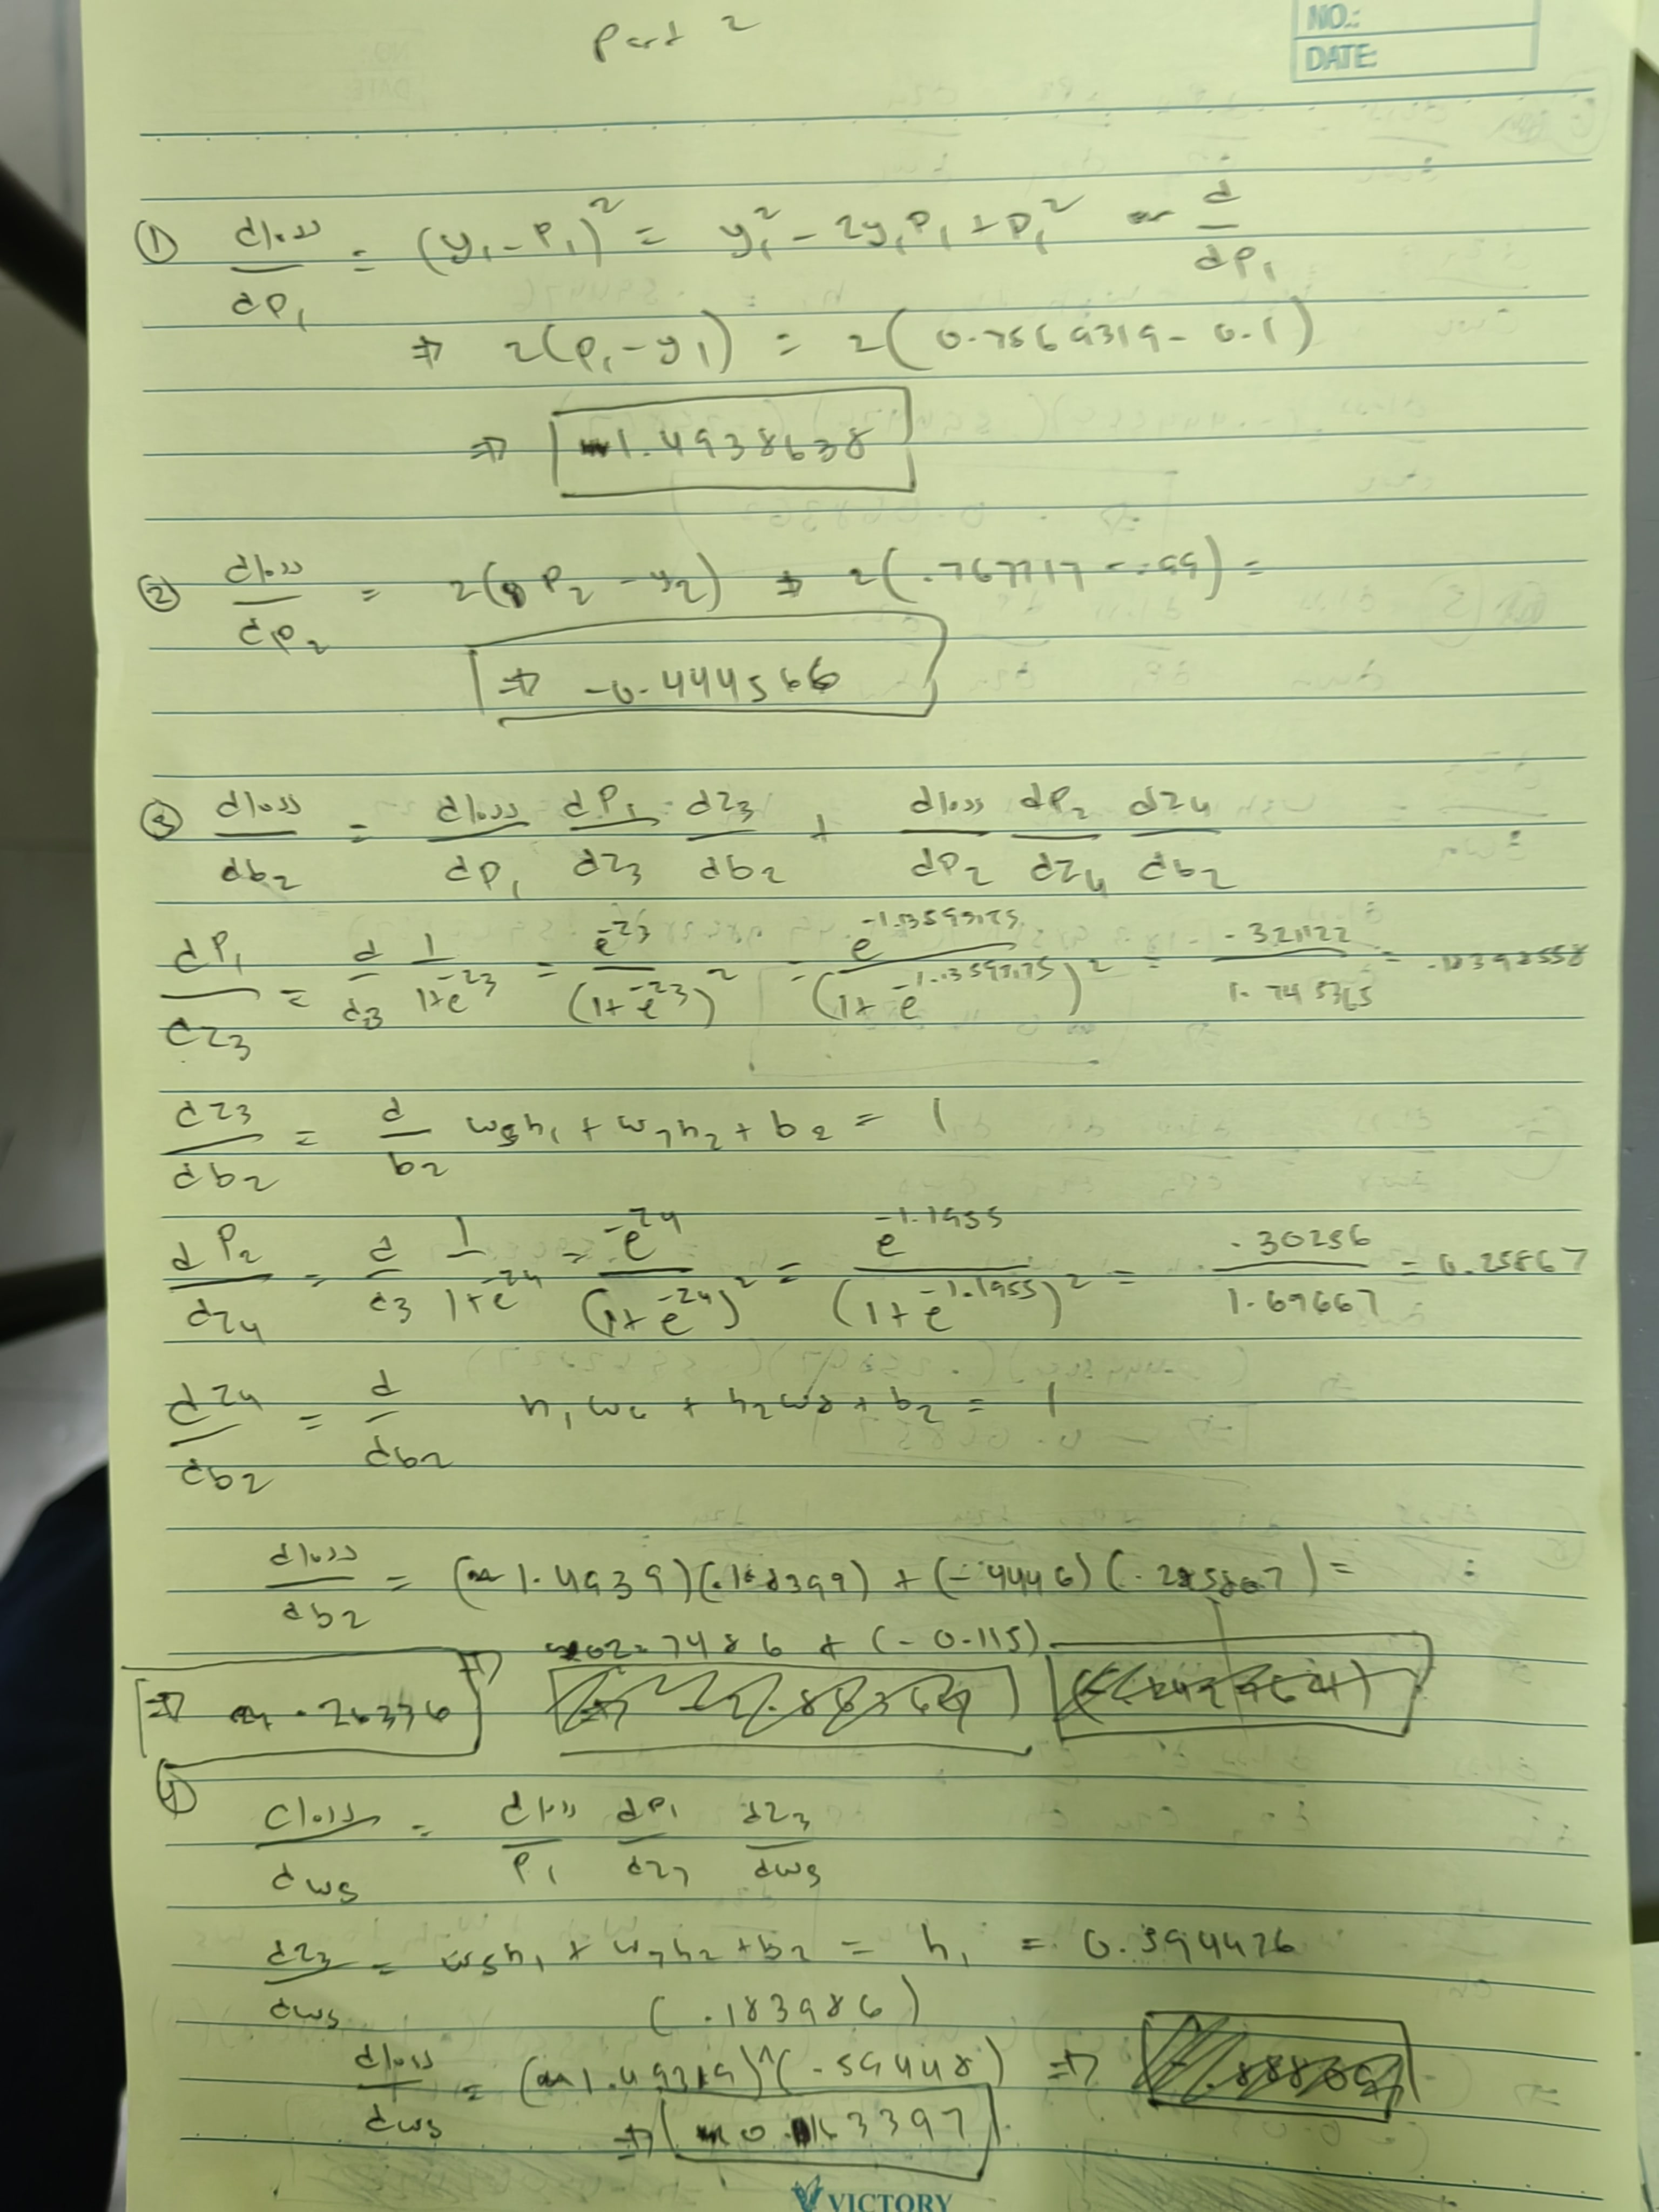 Part 2
NO.:
DATE:
① dloss/dP₁ = (y₁ - P₁)² = y₁² - 2y₁P₁ + P₁² d/dP₁
⇒ 2(P₁ - y₁) = 2(0.7569319 - 0.1)
⇒ 1.4938638
② dloss/dP₂ = 2(P₂ - y₂) ⇒ 2(.767717 - .99) =
⇒ -0.444566
③ dloss/db₂ = dloss/dP₁ dP₁/dz₃ · dz₃/db₂ + dloss/dP₂ dP₂/dz₄ dz₄/db₂
dP₁/dz₃ = d/dz₃ 1/(1+e^-z₃) = e^-z₃/(1+e^-z₃)² = = .321122/1.745365 = .18398558
dz₃/db₂ = d/b₂ w₅h₁ + w₇h₂ + b₂ = 1
dP₂/dz₄ = d/d3 1/(1+e^-z₄) = -e^z₄/(1+e^-z₄)² = e^-1.1955/(1+e^-1.1955)² = .30256/1.69667 = 0.25867
dz₄/db₂ = d/db₂ h₁w₆ + h₂w₈ + b₂ = 1
dloss/db₂ = (1.4939)(.18399) + (-.4446) =
+ (-0.115)
⇒ .26336
④
dloss/dw₅ = dloss/P₁ dP₁/dz₃ dz₃/dw₅
dz₃/dw₅ = w₅h₁ + w₇h₂ + b₂ = h₁ = 0.594476
(.183986)
dloss/dw₅ = ^(.59448) ⇒
⇒ 0.163397
VICTORY